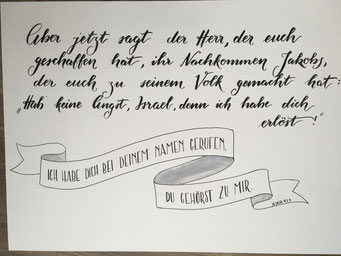 Aber jetzt sagt der Herr, der euch
geschaffen hat, ihr Nachkommen Jakobs,
der euch zu seinem Volk gemacht hat:
„Hab keine Angst, Israel, denn ich habe dich
erlöst!"
ICH HABE DICH BEI DEINEM NAMEN GERUFEN.
DU GEHÖRST ZU MIR.